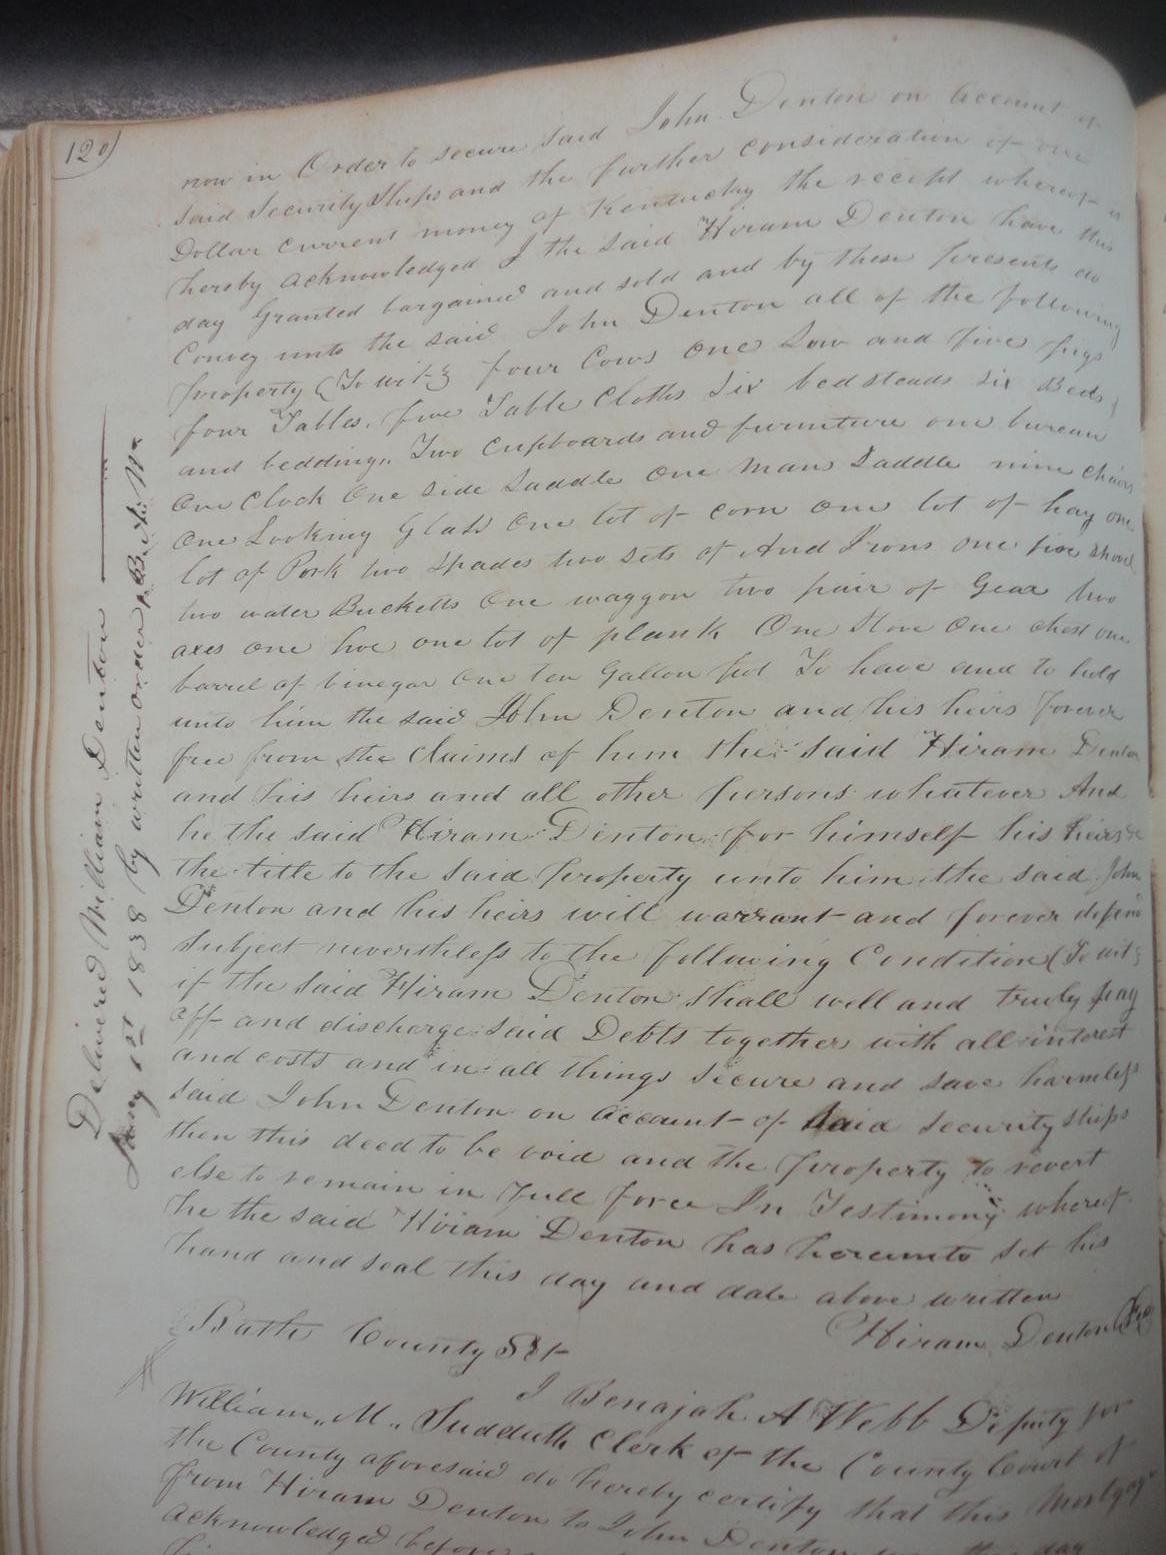 120
now in Order to secure said John Denton on Account of
said Security Ships and the further consideration of one
Dollar current money of Kentucky the receipt whereof is
hereby acknowledged I the said Hiram Denton have this
day Granted bargained and sold and by these presents do
Convey unto the said John Denton all of the following
property (To wit;) four Cows One Sow and five pigs
four Tables, five Table Cloths Six bedsteads six Beds
and bedding,, Two Cupboards and furniture one bureau
One Clock One side Saddle One Mans Saddle nine chairs
One Looking Glass One lot of corn one lot of hay one
lot of Pork two Spades two sets of And Irons one fire shovel
two water Bucketts One waggon two pair of Gear two
axes one hoe one lot of plank One Stove One chest one
barrel of vinegar One ten Gallon pot To have and to hold
unto him the said John Denton and his heirs forever
free from the Claims of him the said Hiram Denton
and his heirs and all other persons whatever And
he the said Hiram Denton for himself his heirs &c
the title to the said property unto him the said John
Denton and his heirs will warrant and forever defend
subject neverthless to the following Condition (To wit;
if the said Hiram Denton shall well and truly pay
off and discharge said Debts together with all interest
and costs and in all things secure and save harmless
said John Denton on account of said security ships
then this deed to be void and the property to revert
else to remain in full force In Testimony whereof
he the said Hiram Denton has hereunto set his
hand and seal this day and date above written
Hiram Denton
Bath County Sct
I Benajah A Webb Deputy for
William,, M,, Sudduth Clerk of the County Court of
the County aforesaid do hereby certify that this Mortgage
from Hiram Denton to John Denton was this day
acknowledged before
Delivered William Denton
Jany 1st 1838 by written order